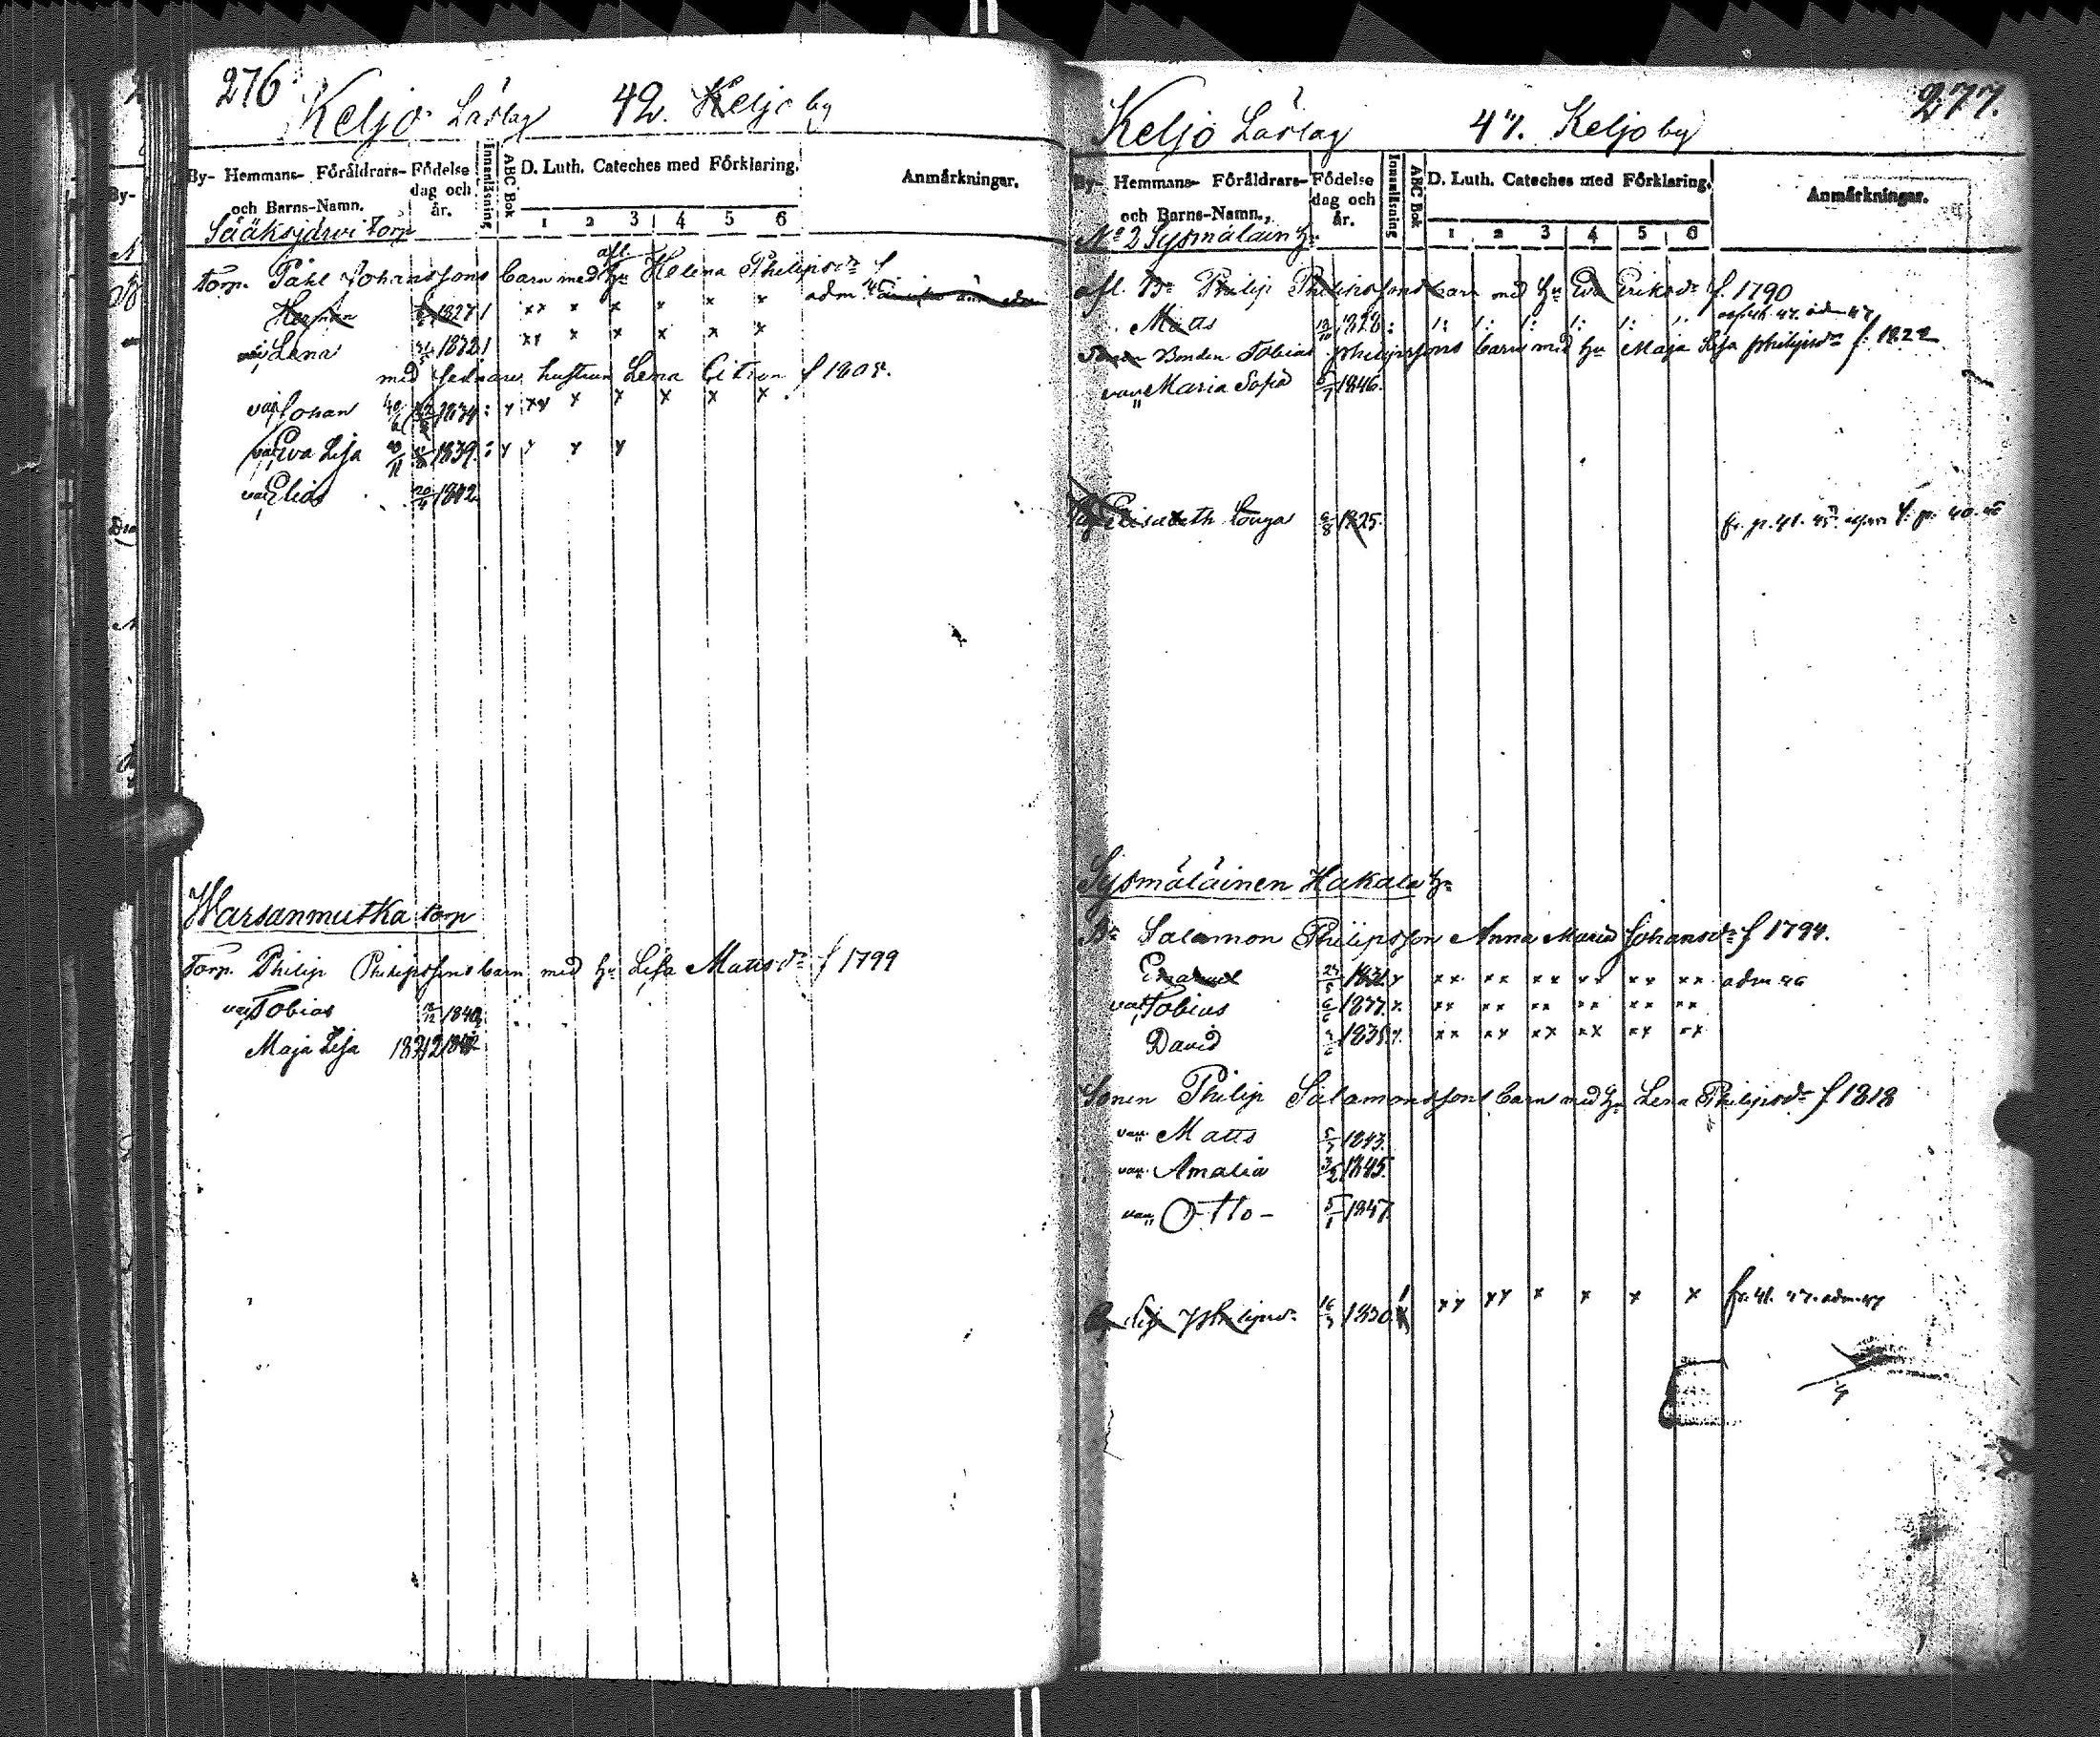 276
Keljo Läslag 42. Keljo by
By- Hemmans- Föräldrars- och Barns-Namn.
Födelse dag och år.
Innanläsning
ABC Bok
D. Luth. Cateches med Förklaring.
1 2 3 4 5 6
Anmärkningar.
Sääksjärvi Torp
Torp. Påhl Johanssons barn med afl. hu Helena Philipsdr f
Herman 1827 x x x x x x adm
Lena 1832 x x x x x x
med sednare hustrun Lena Citron f 1805.
vac Johan 1834 x x x x x x x
vac Eva Lisa 1839 x x x x
vac Elias 1842
Warsanmutka torp
Torp. Philip Philipssons barn med hu Lisa Mattsdr f 1799
vac Tobias 1840
Maja Lisa 1842
277.
Keljo Läslag 47. Keljo by
By- Hemmans- Föräldrars- och Barns-Namn.
Födelse dag och år.
Innanläsning
ABC Bok
D. Luth. Cateches med Förklaring.
1 2 3 4 5 6
Anmärkningar.
No 2 Sysmäläin hn
afl. Bn Philip Philipssons barn med hu Eva Eriksdr f. 1790
Matts 1828 adm 47
Bonden Tobias philipssons barn med hu Maja Lisa philipsdr f. 1822
vac Maria Sofia 1846.
Elisabeth 6/8 1825. fr. p. 41. 45.
Sysmäläinen Hakala hn
Bn Salomon Philipsson Anna Maria Johansdr f 1794.
Emanuel x xx xx xx xx xx xx adm 46
vac Tobias x xx xx xx xx xx xx
David x xx xx xx xx xx xx
Sonen Philip Salamonssons barn med hu Lena Philipsdr f 1818
vac Matts 1843.
vac Amalia 1845.
vac Otto - 5/1 1847
philipsdr 1830 xx xx x x x x fr. 41. 47. adm. 47